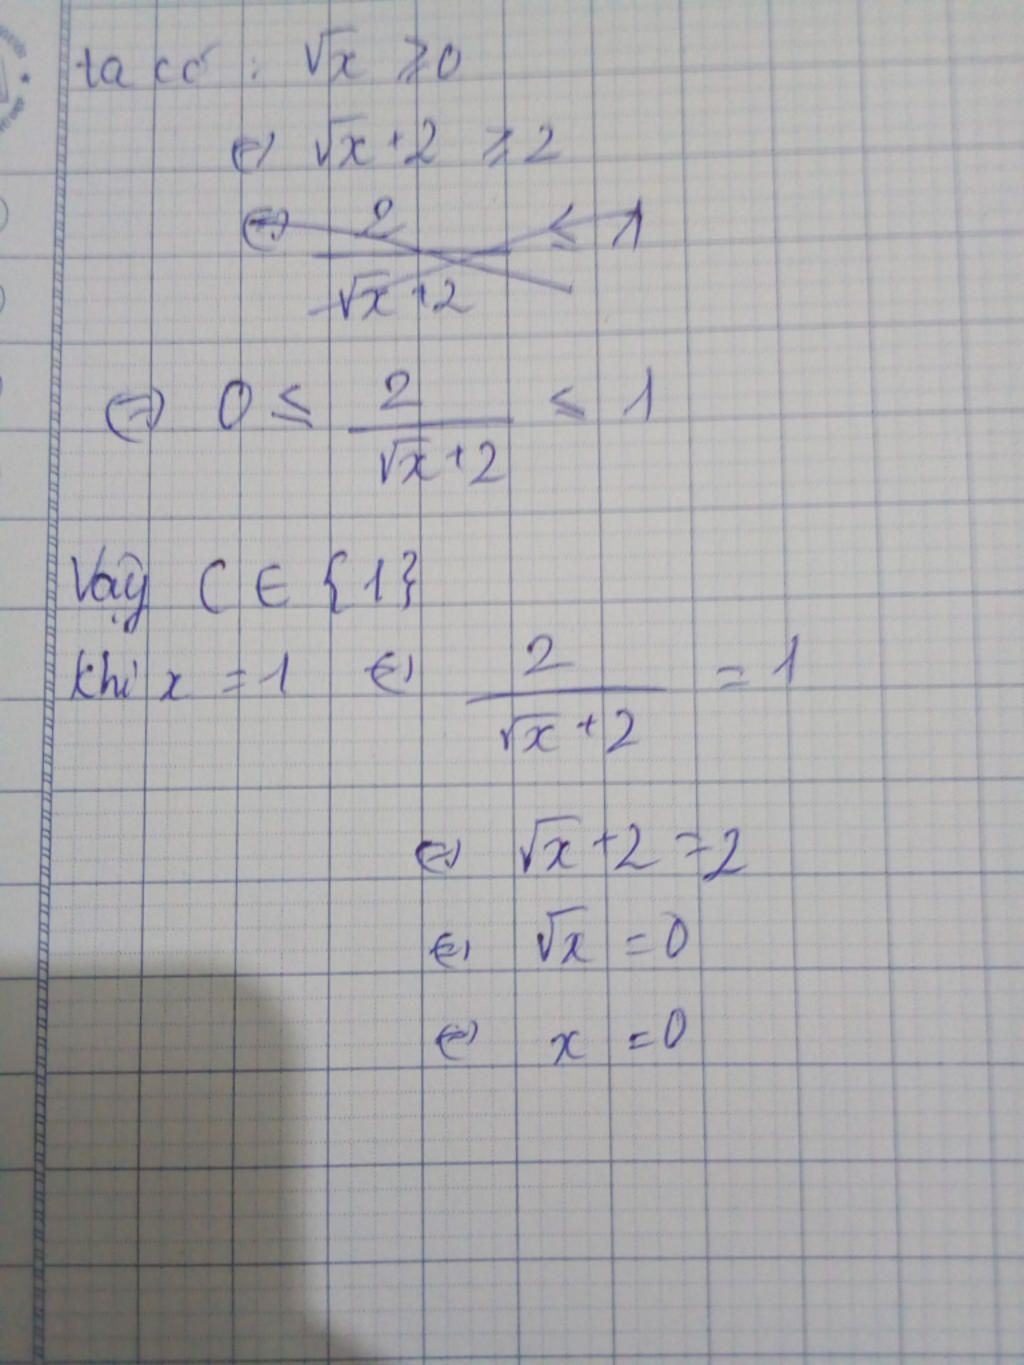 ta có : √x ≥ 0
⇔ √x + 2 ≥ 2
⇔ 2/(√x + 2) ≤ 1
⇔ 0 ≤ 2/(√x + 2) ≤ 1
Vậy C ∈ {1}
khi x = 1 ⇔ 2/(√x + 2) = 1
⇔ √x + 2 = 2
⇔ √x = 0
⇔ x = 0